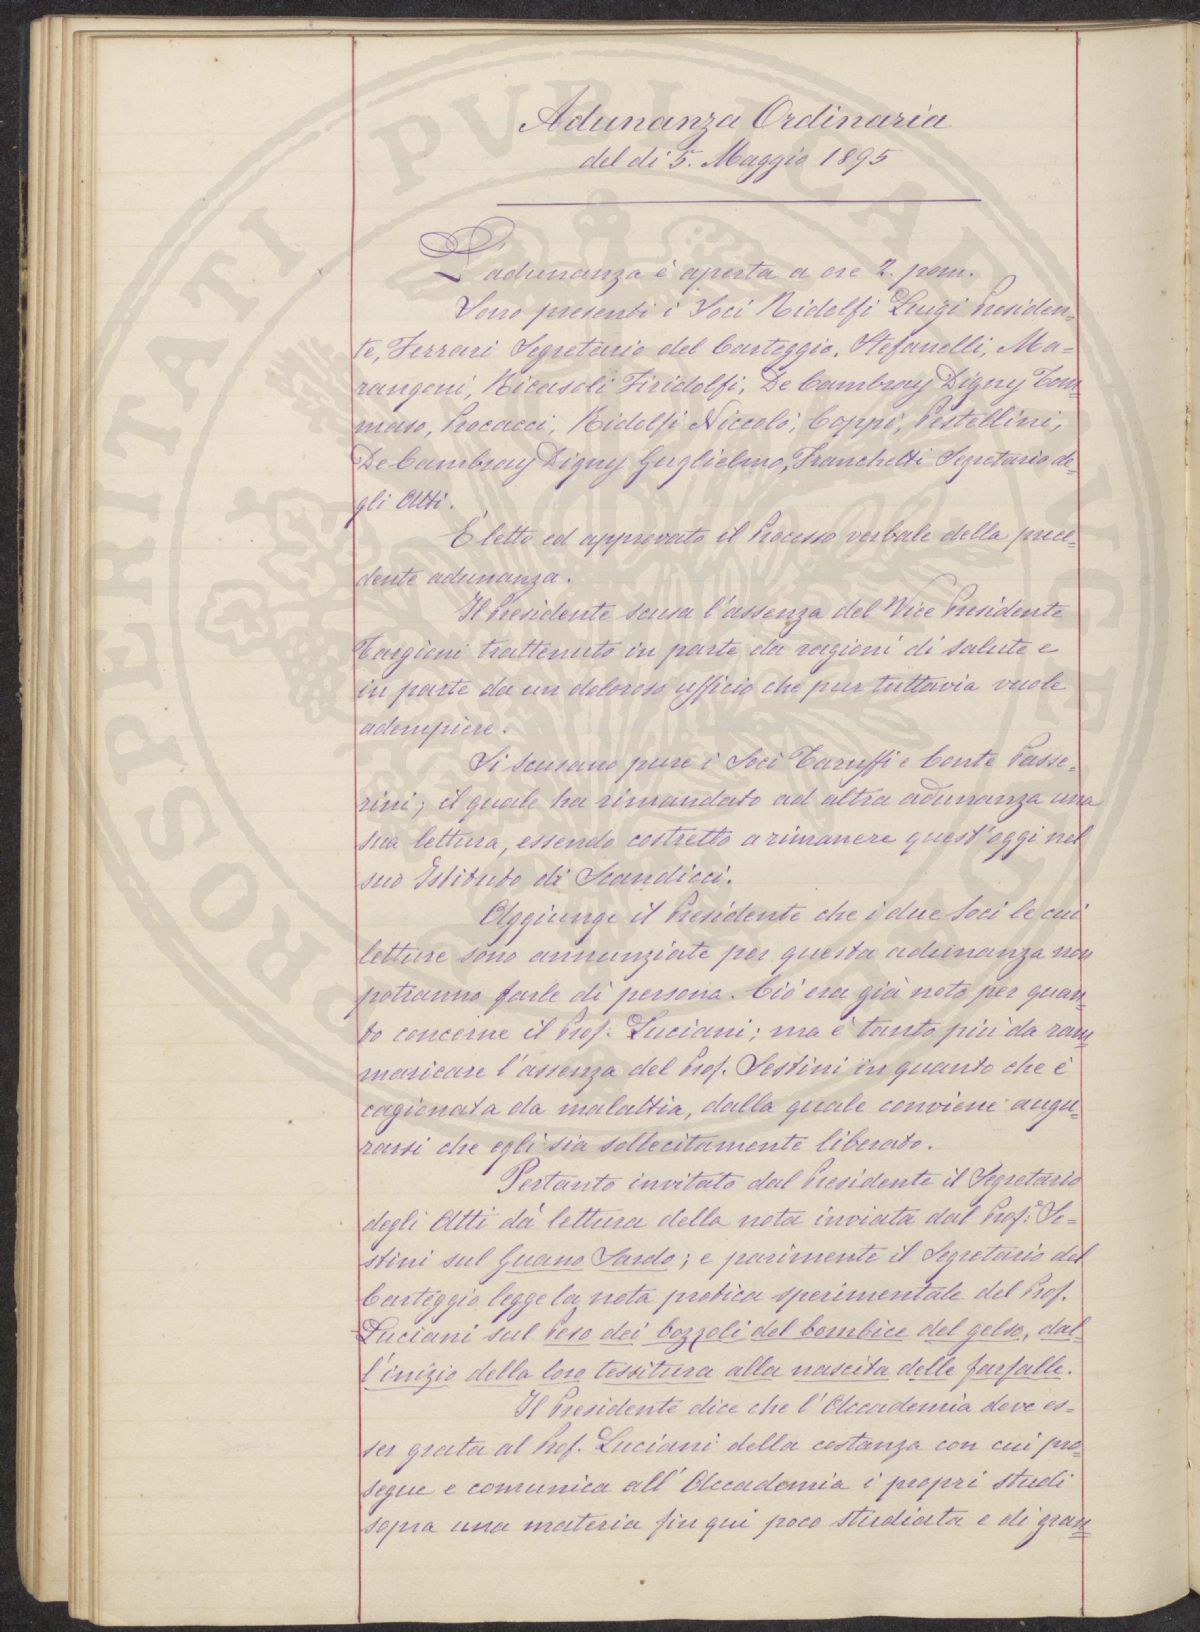 Adunanza Ordinaria
del dì 5. Maggio 1895
L'adunanza è aperta a ore 2. pom.
Sono presenti i Soci Ridolfi Luigi Presiden=
te, Ferrari Segretario del Carteggio, Stefanelli, Ma=
rangoni, Ricasoli Firidolfi, De Cambray Digny Tom=
maso, Procacci, Ridolfi Niccolò, Coppi, Pestellini,
De Cambray Digny Guglielmo, Franchetti Segretario de=
gli Atti.
È letto ed approvato il Processo verbale della prece=
dente adunanza.
Il Presidente scusa l'assenza del Vice Presidente
Targioni trattenuto in parte da ragioni di salute e
in parte da un doloroso ufficio che pur tuttavia vuole
adempiere.
Si scusano pure i Soci Taruffi e Conte Passe=
rini, il quale ha rimandato ad altra adunanza una
sua lettura, essendo costretto a rimanere quest'oggi nel
suo Istituto di Scandicci.
Aggiunge il Presidente che i due Soci le cui
letture sono annunziate per questa adunanza non
potranno farle di persona. Ciò era già noto per quan=
to concerne il Prof. Luciani; ma è tanto più da ram=
maricare l'assenza del Prof. Sestini in quanto che è
cagionata da malattia, dalla quale conviene augu=
rarsi che egli sia sollecitamente liberato.
Pertanto invitato dal Presidente il Segretario
degli Atti dà lettura della nota inviata dal Prof. Se=
stini sul Guano Sardo; e parimente il Segretario del
Carteggio legge la nota pratica sperimentale del Prof.
Luciani sul Peso dei bozzoli del bombice del gelso, dal=
l'inizio della loro tessitura alla nascita delle farfalle.
Il Presidente dice che l'Accademia deve es=
ser grata al Prof. Luciani della costanza con cui pro=
segue e comunica all'Accademia i propri studi
sopra una materia fin qui poco studiata e di gran=
PROSPERITATI PUBLICAE AUGENDAE